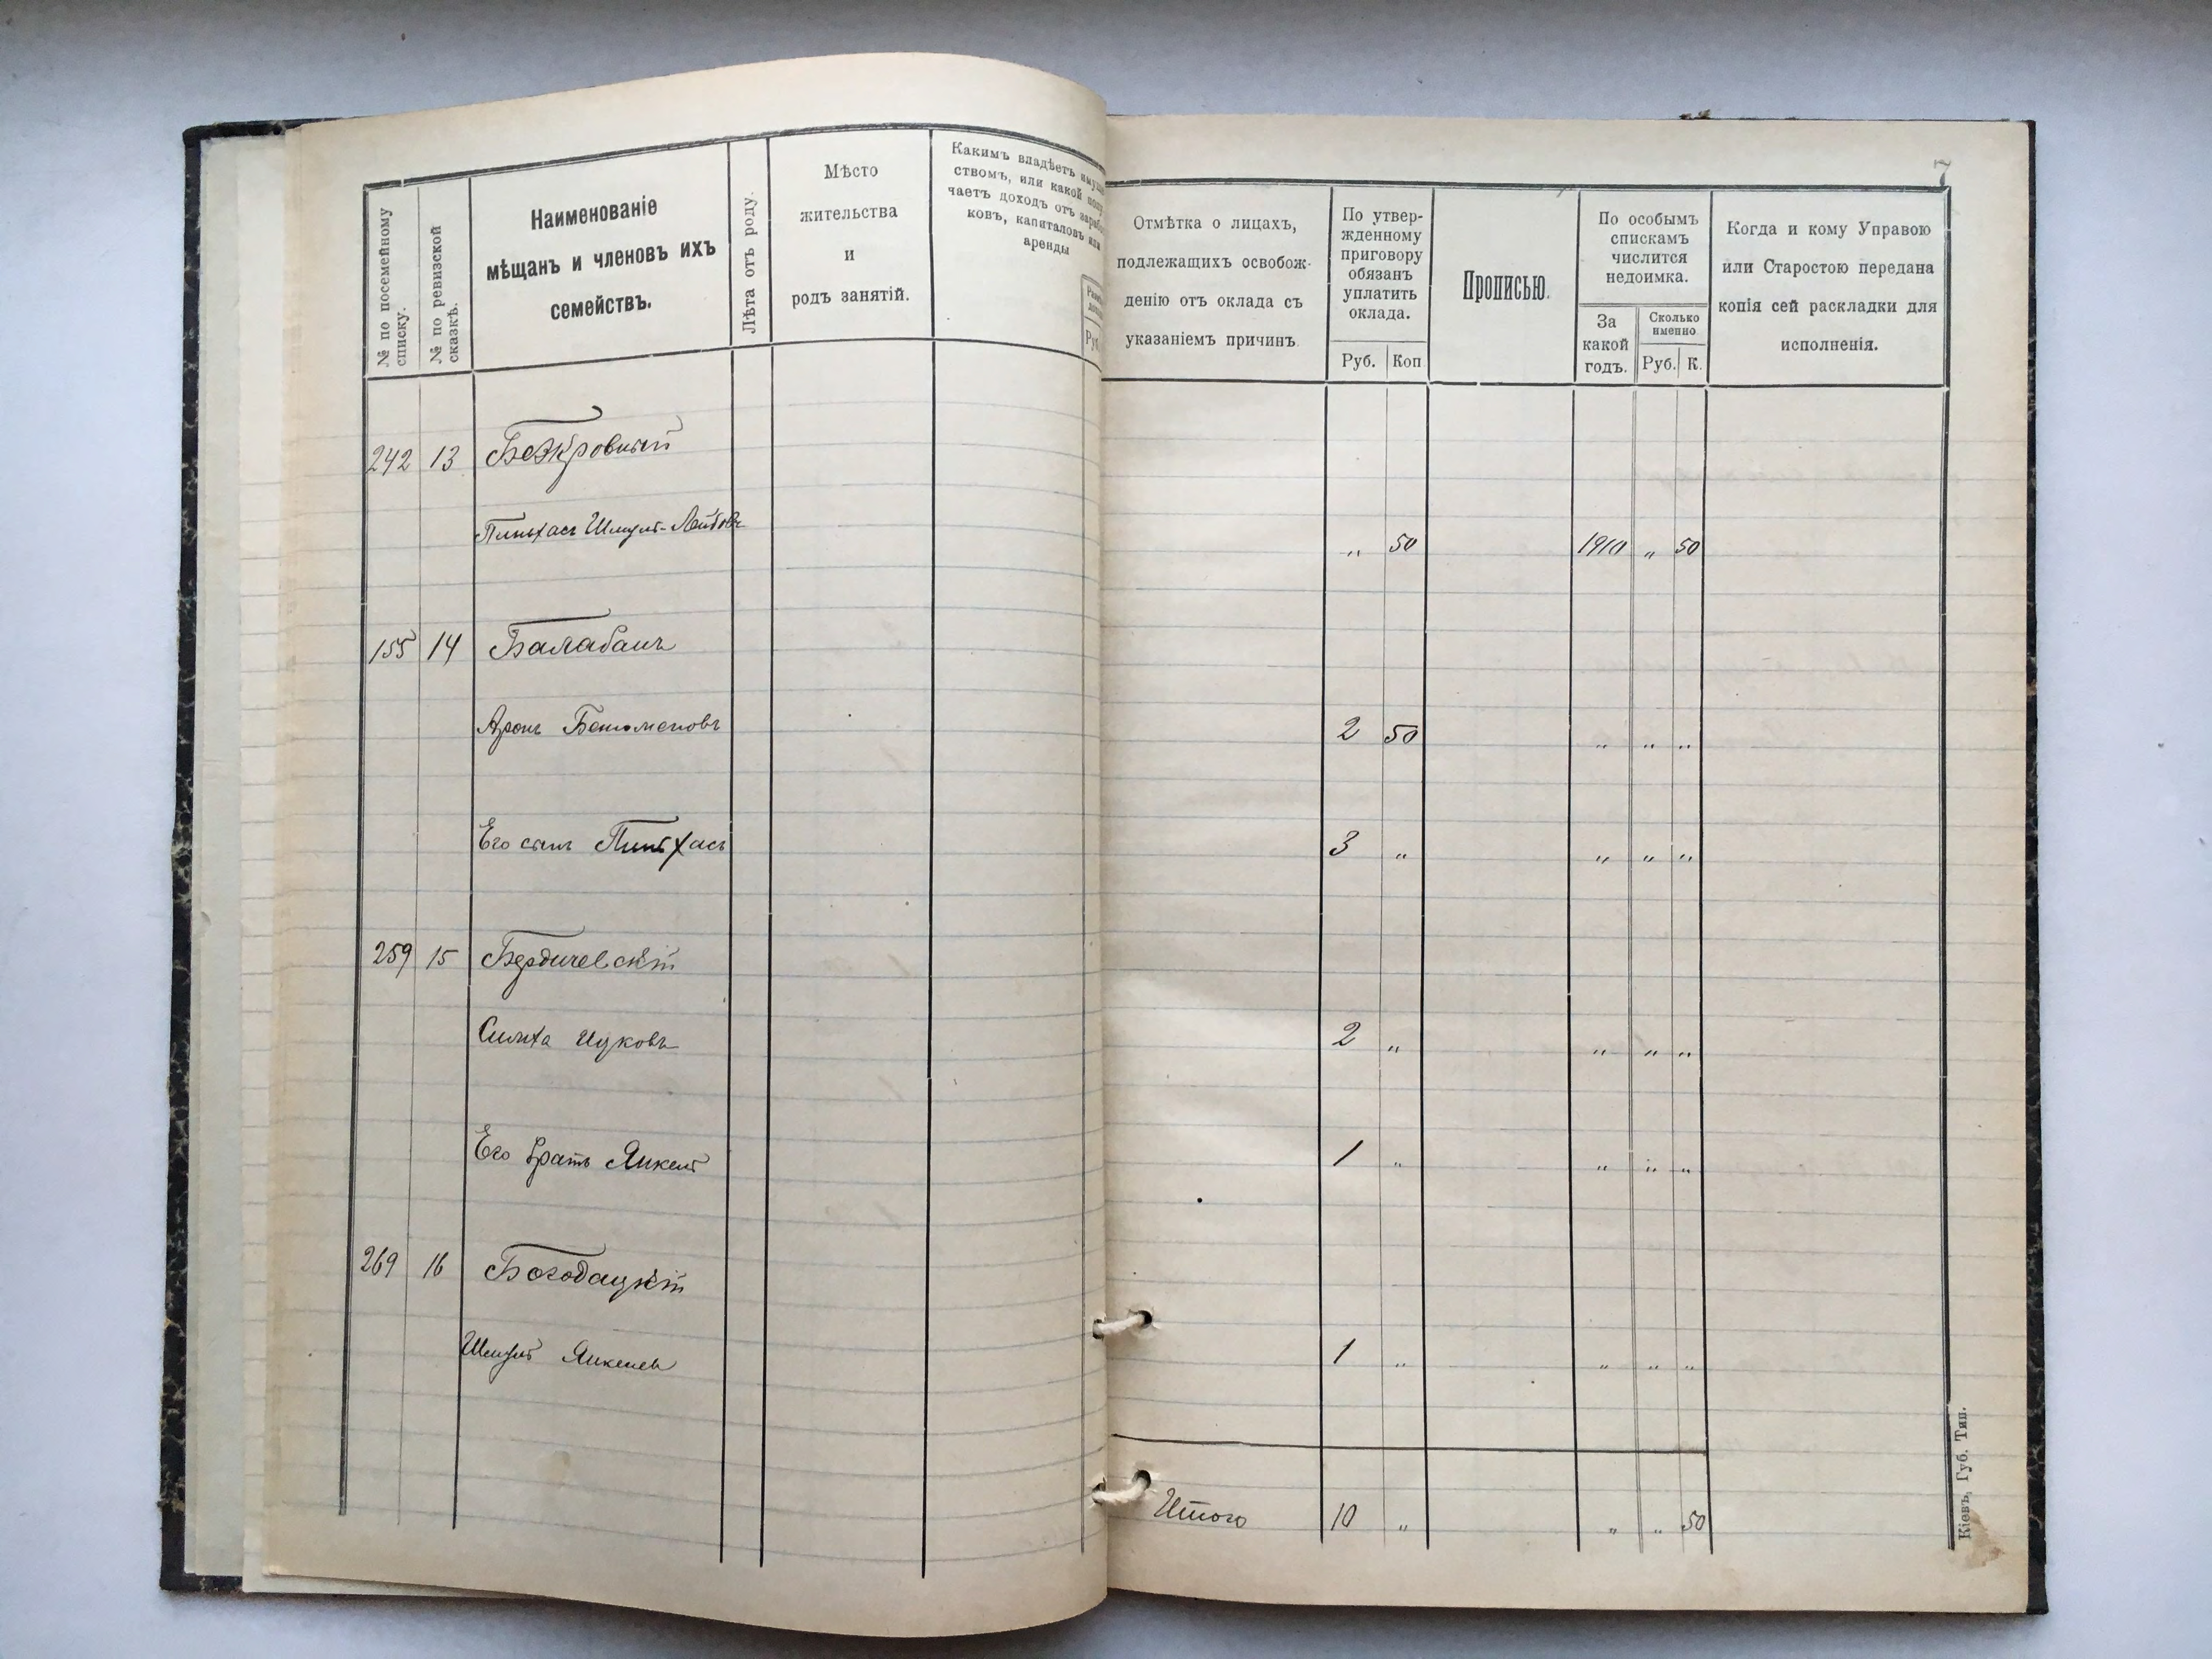 № по посемейному
списку.
№ по ревизской
сказкѣ.
Наименованіе
мѣщанъ и членовъ ихъ
семействъ.
Лѣта отъ роду.
Мѣсто
жительства
и
родъ занятій.
Какимъ владѣетъ
ствомъ, или какой
чаетъ доходъ отъ
ковъ, капиталовъ или
аренды
Руб.
7
Отмѣтка о лицахъ,
подлежащихъ освобож-
денію отъ оклада съ
указаніемъ причинъ
По утвер-
жденному
приговору
обязанъ
уплатить
оклада.
Руб. Коп
Прописью.
По особымъ
спискамъ
числится
недоимка.
За
какой
годъ.
Сколько
именно
Руб. К.
Когда и кому Управою
или Старостою передана
копія сей раскладки для
исполненія.
242 13 Безкровный
Пинхасъ Шмуль-Лейбовъ „ 50 1910 „ 50
155 14 Балабанъ
Аронъ 2 50 „ „ „
Его сынъ Пинхасъ 3 „ „ „ „
259 15 Бердичевскій
Симха Ицковъ 2 „ „ „ „
Его братъ Янкель 1 „ „ „ „
269 16 Богодацкій
Шмуль Янкелев 1 „ „ „ „
Итого 10 „ „ „ 50
Кіевъ, Губ. Тип.